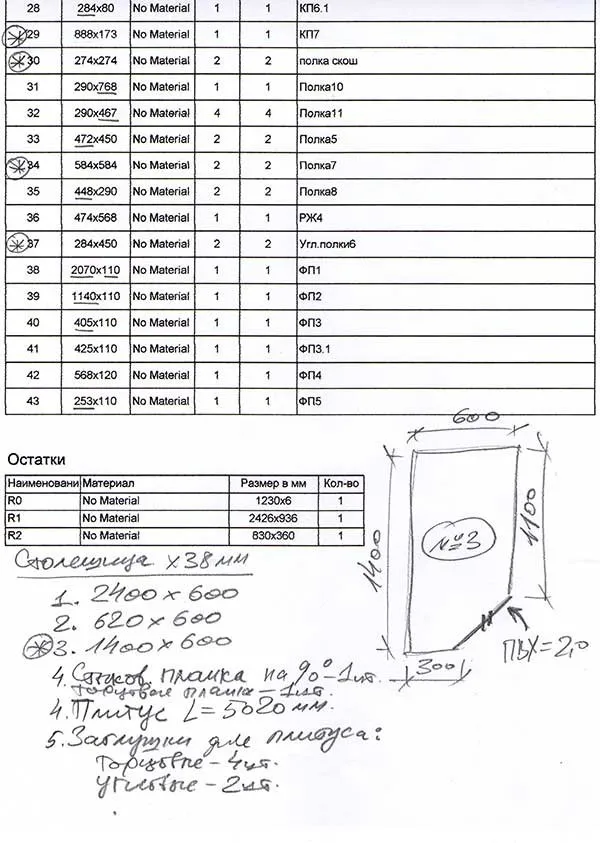 28 284x80 No Material 1 1 КП6.1
29 888x173 No Material 1 1 КП7
30 274x274 No Material 2 2 полка скош
31 290x768 No Material 1 1 Полка10
32 290x467 No Material 4 4 Полка11
33 472x450 No Material 2 2 Полка5
34 584x584 No Material 2 2 Полка7
35 448x290 No Material 2 2 Полка8
36 474x568 No Material 1 1 РЖ4
37 284x450 No Material 2 2 Угл.полки6
38 2070x110 No Material 1 1 ФП1
39 1140x110 No Material 1 1 ФП2
40 405x110 No Material 1 1 ФП3
41 425x110 No Material 1 1 ФП3.1
42 568x120 No Material 1 1 ФП4
43 253x110 No Material 1 1 ФП5
Остатки
Наименовани Материал Размер в мм Кол-во
R0 No Material 1230x6 1
R1 No Material 2426x936 1
R2 No Material 830x360 1
600
1400
1100
№3
300
ПВХ=2,0
Столешница х38мм
1. 2400 х 600
2. 620 х 600
3. 1400 х 600
4. Стыков. планка на 90°-1шт.
Торцовые планка-1шт.
4. Плитус L=5020мм.
5. Заглушки для плитуса:
Торцовые-4шт.
Угловые-2шт.